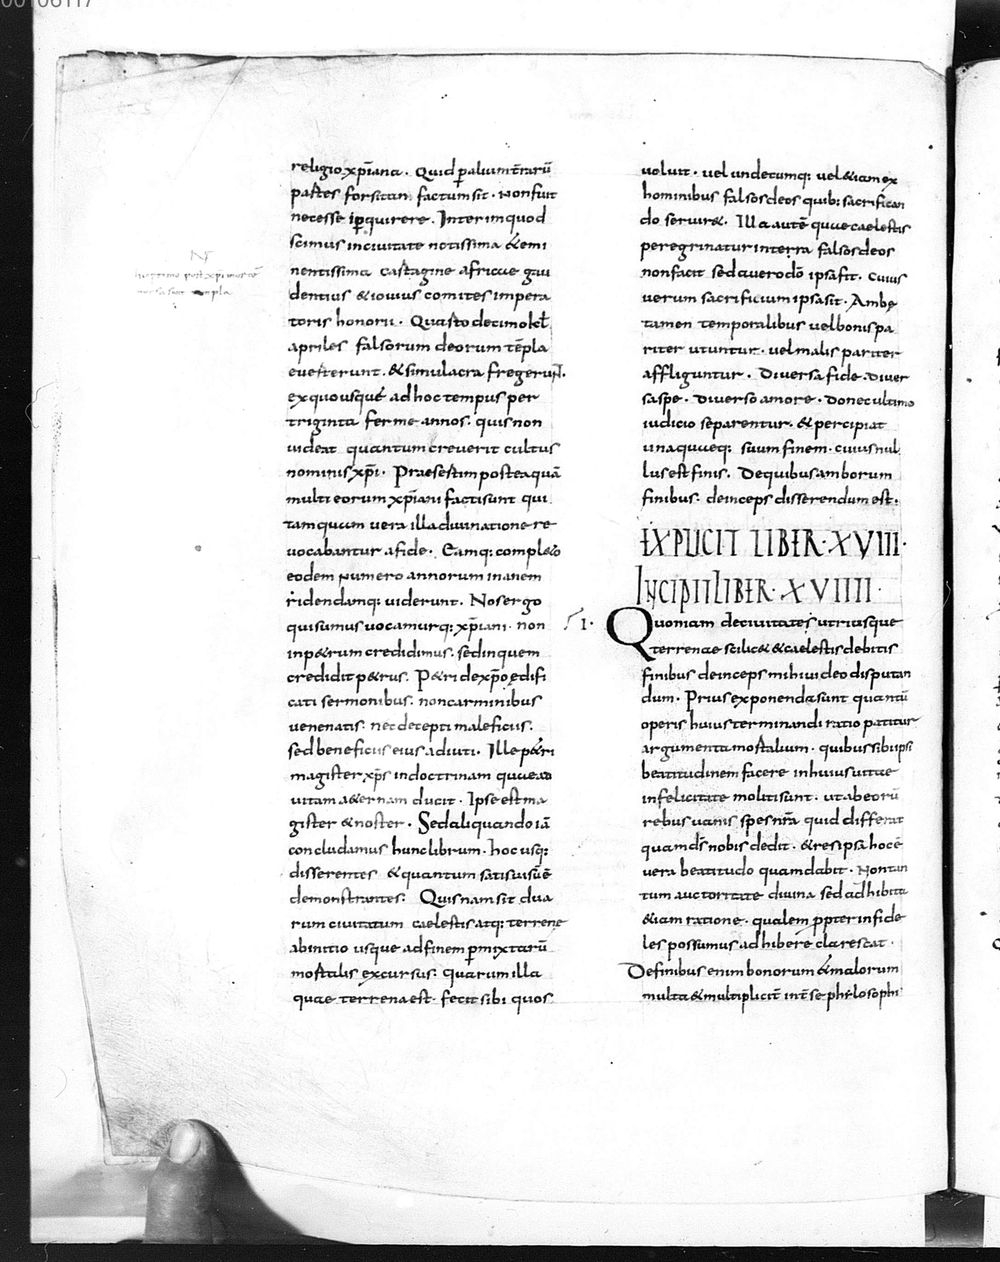 00106117
religio xp̄iana. Quid p̱ alium t̄rarū
partes forsitan factum sit. Non fuit
necesse ip̱quirere. Interim quod
scimus inciuitate notissima & emi
nentissima cartagine africae gau
dentius & iouius comites impera
toris honorii. Quarto decimo kl̄.
apriles falsorum deorum tēpla
euerterunt. & simulacra fregerunt.
ex quo usque ad hoc tempus per
triginta ferme annos. quis non
uideat quantum creuerit cultus
nominis xp̄i. Praesertim postea quā
multi eorum xp̄iani facti sunt qui
tamquam uera illa diuinatione re
uocabantur a fide. Eamq: completo
eodem numero annorum inanem
ridendamq: uiderunt. Nos ergo
qui sumus uocamurq: xp̄iani. non
in p&rum credidimus. sed in quem
credidit p&rus. P&ri de xp̄o ędifi
cati sermonibus. non carminibus
uenenatis. nec decepti maleficiis.
sed beneficiis eius adiuti. Ille p&ri
magister xp̄s in doctrinam quae ad
uitam a&ernam ducit. Ipse est ma
gister & noster. Sed aliquando iā
concludamus hunc librum. hoc usq:
disserentes & quantum satis uisū ē
demonstrantes. Quis nam sit dua
rum ciuitatum caelestis atq: terrene
ab initio usque ad finem p̱mixtarū
mortalis excursus. quarum illa
quae terrena est. fecit sibi quos
uoluit. uel undecumq: uel &iam ex
hominibus falsos deos quib: sacrifican
do seruir&. Illa autē quae caelestis
peregrinatur in terra falsos deos
non facit sed a uero dō ipsa fit. cuius
uerum sacrificium ipsa sit. Ambę
tamen temporalibus uel bonis pa
riter utuntur. uel malis pariter
affliguntur. Diuersa fide. diuer
sa spe. diuerso amore. donec ultimo
iudicio separentur. & percipiat
unaquaeq: suum finem. cuius nul
lus est finis. De quibus amborum
finibus. deinceps disserendum est.
EXPLICIT LIBER. XVIII.
INCIPIT LIBER. XVIIII.
I. Quoniam de ciuitatis utriusque
terrenae scilic& & caelestis debitis
finibus deinceps mihi uideo disputan
dum. Prius exponenda sunt quantū
operis huius terminandi ratio patitur
argumenta mortalium. quibus sibi ipsi
beatitudinem facere in huius uitae
infelicitate moliti sunt. ut ab eorū
rebus uanis spes nr̄a quid differat
quam d̄s nobis dedit. & res ipsa hoc ē
uera beatitudo quam dabit. Non tan
tum auctoritate diuina sed adhibita
&iam ratione. qualem p̱pter infide
les possumus adhibere clarescat.
De finibus enim bonorum & malorum
multa & multipliciť int̄ se philosophi